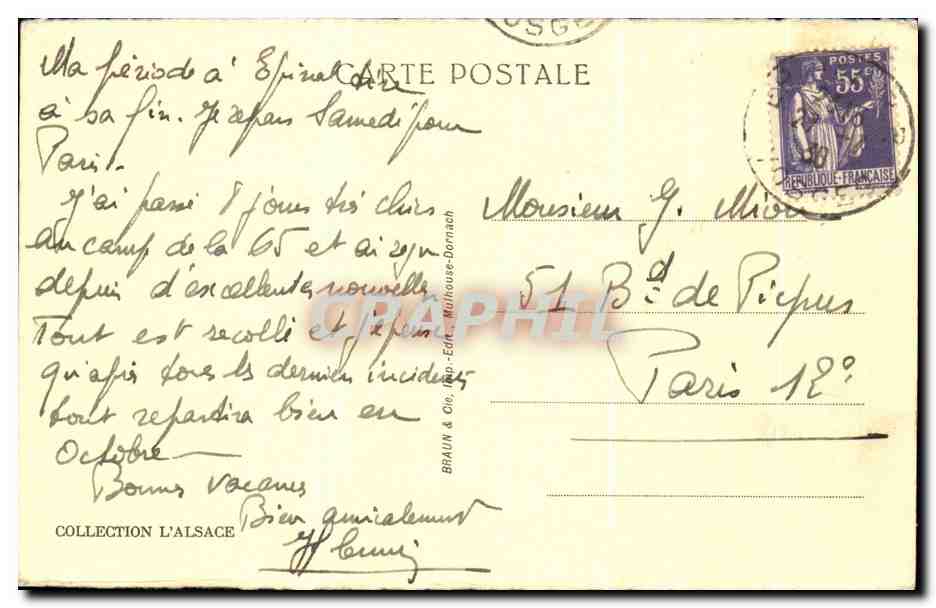 OSGE
CARTE POSTALE
Ma période à Epinal tire
à sa fin. Je repars Samedi pour
Paris.
J'ai passé 8 jours très chics
au camp de la 65 et ai reçu
depuis d'excellentes nouvelles
Tout est recollé et je pense
qu'après tous les derniers incidents
tout repartira bien en
Octobre
Bonnes vacances
Bien amicalement
COLLECTION L'ALSACE
BRAUN & Cie, Imp.-Edit., Mulhouse-Dornach
CRAPHIL
POSTES
55c
REPUBLIQUE-FRANÇAISE
38
Monsieur G. Mion
51 Bd. de Picpus
Paris 12º